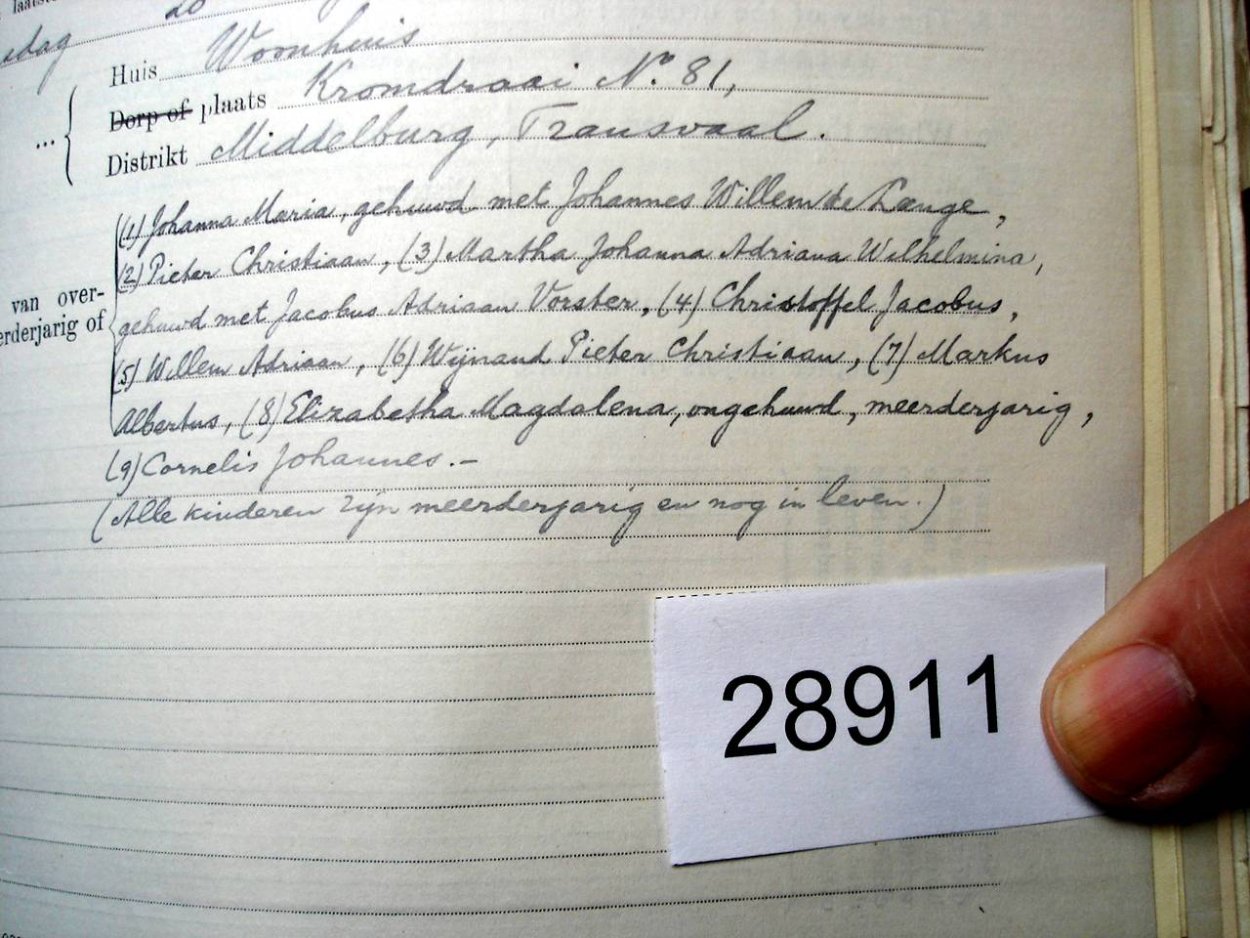 20
Huis Woonhuis
Dorp of plaats Kromdraai No. 81,
... Distrikt Middelburg, Transvaal.
(1) Johanna Maria, gehuwd met Johannes Willem de Lange,
(2) Pieter Christiaan, (3) Martha Johanna Adriana Wilhelmina,
van over- gehuwd met Jacobus Adriaan Vorster, (4) Christoffel Jacobus,
erderjarig of
(5) Willem Adriaan, (6) Wijnand Pieter Christiaan, (7) Markus
Albertus, (8) Elizabetha Magdalena, ongehuwd, meerderjarig,
(9) Cornelis Johannes.-
(Alle kinderen zijn meerderjarig en nog in leven.)
28911